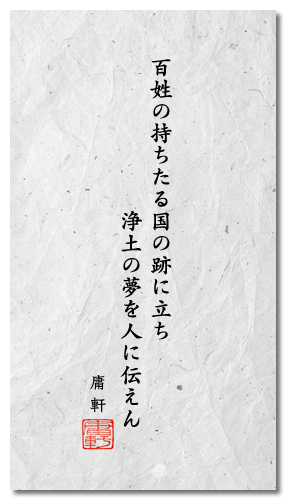 百姓の持ちたる国の跡に立ち
浄土の夢を人に伝えん
庸軒
庸軒